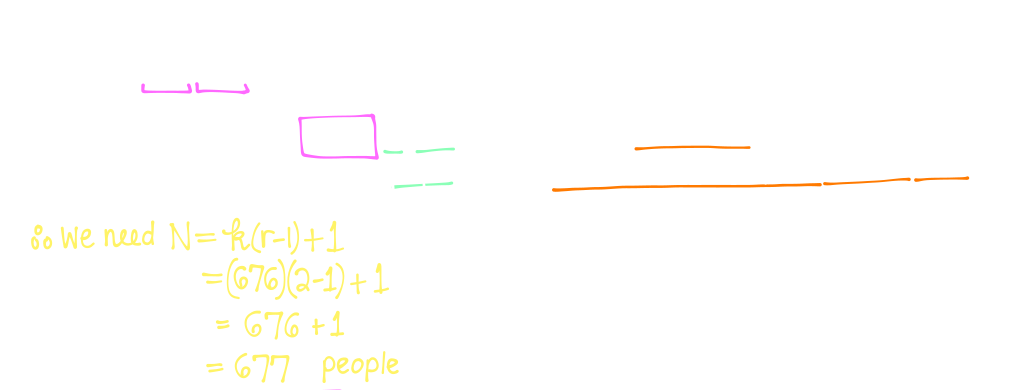 ∴ We need N = k(r-1)+1
= (676)(2-1)+1
= 676 +1
= 677 people